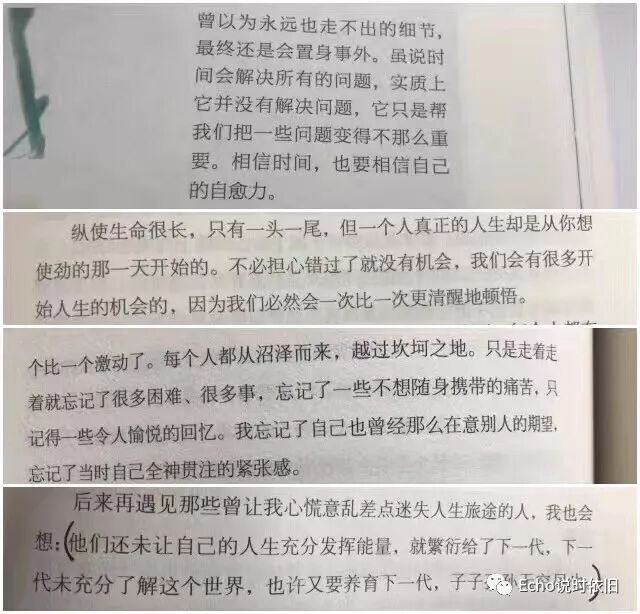 曾以为永远也走不出的细节，
最终还是会置身事外。虽说时
间会解决所有的问题，实质上
它并没有解决问题，它只是帮
我们把一些问题变得不那么重
要。相信时间，也要相信自己
的自愈力。
纵使生命很长，只有一头一尾，但一个人真正的人生却是从你想
使劲的那一天开始的。不必担心错过了就没有机会，我们会有很多开
始人生的机会的，因为我们必然会一次比一次更清醒地顿悟。
个比一个激动了。每个人都从沼泽而来，越过坎坷之地。只是走着走
着就忘记了很多困难、很多事，忘记了一些不想随身携带的痛苦，只
记得一些令人愉悦的回忆。我忘记了自己也曾经那么在意别人的期望，
忘记了当时自己全神贯注的紧张感。
后来再遇见那些曾让我心慌意乱差点迷失人生旅途的人，我也会
想：（他们还未让自己的人生充分发挥能量，就繁衍给了下一代，下一
代未充分了解这个世界，也许又要养育下一代，子子
Echo说时依旧